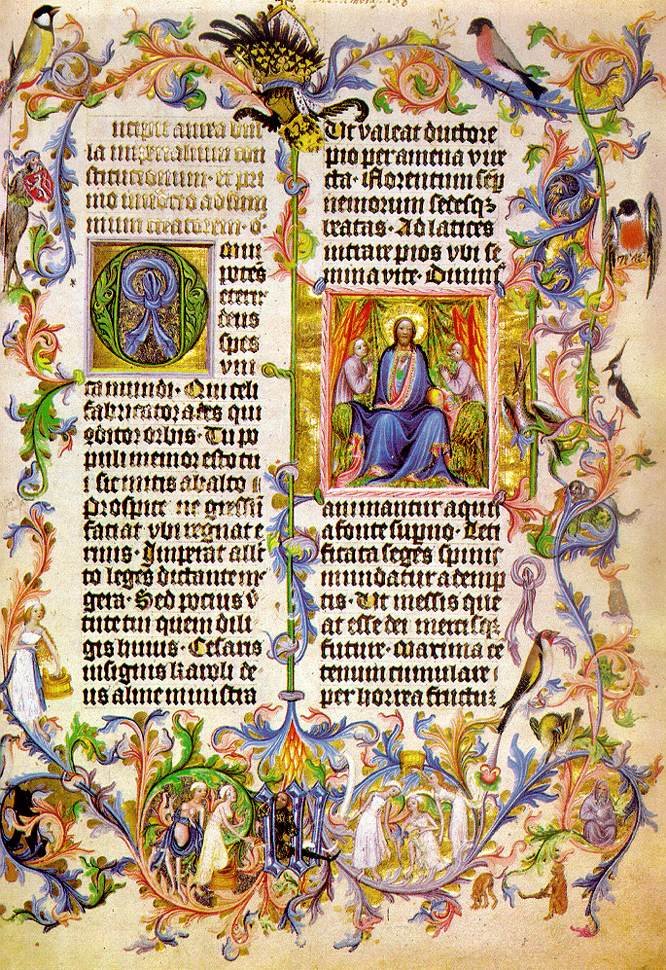 ncipit aurea bul
la imperialium con
stitucionum· et pri
mo invocatio ad sum
mum creatorem· o
O mni
potes
eterne
deus
spes
vni
ca mundi· Qui celi
fabricator ades qui
9ditor orbis· Tu po
puli memor esto tu
i sic mitis ab alto
Prospice ne gressū
faciat vbi regnat e
rinis· Imperat alle
to leges dictante me
gera· Sed pocius v
tute tui quem dili
gis huius· Cesaris
insignis karoli de
us alme ministra
Ut valeat ductore
pio per amena vire
cta· Florentum sep
nemorum sedesq3
beatas· Ad latices
intrare pios vbi se
mina vite· Diuinis
animantur aquis
a fonte supno· Leti
ficata seges spinis
mundatur ademp
tis· Ut messis que
at esse dei mercisq3
future· Maxima ce
tenum cumulare
per horrea fructum